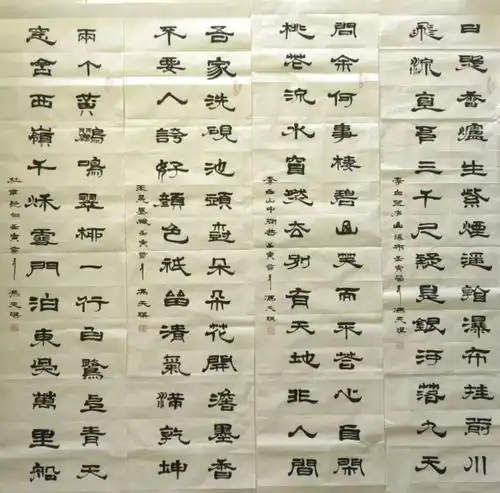 日照香爐生紫煙遥看瀑布挂前川
飛流直下三千尺疑是銀河落九天
李白望廬山瀑布壬寅 馮天琪
問余何事棲碧山笑而不答心自閑
桃花流水窅然去別有天地非人間
李白山中問答壬寅 馮天琪
吾家洗硯池頭樹朵朵花開澹墨香
不要人誇好顏色祇留清氣滿乾坤
王冕墨梅壬寅 馮天琪
兩个黃鸝鳴翠柳一行白鷺上青天
窓含西嶺千秋雪門泊東吳萬里船
杜甫絕句壬寅 馮天琪